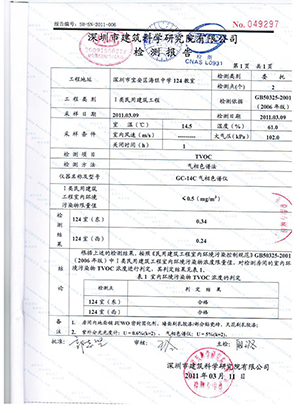 报告编号：SH-SN-2011-006
No. 049297
深圳市建筑科学研究院有限公司
检 测 报 告
CNAS L0931
第 1 页 共 1 页
工程地址 深圳市宝安区海旺中学 124 教室 检测类别 委 托
检测点(个) 2
工 程 类 别 Ⅰ类民用建筑工程 检测依据 GB50325-2001（2006 年版）
采 样 日 期 2011.03.09 检测日期 2011.03.09
采 样 条 件 室 温（℃） 14.5 湿度（%） 61.0
室内风速（m/s） -------- 大气压(kPa) 102.0
关闭时间（h） 1
检 测 项 目 TVOC
检 测 方 法 气相色谱法
仪器名称及型号 GC-14C 气相色谱仪
Ⅰ类民用建筑工程室内环境污染物限量值 ≤0.5（mg/m³）
检测结果 124 室（东） 0.34
124 室（西） 0.24
结论
根据上述的检测结果，按照《民用建筑工程室内环境污染控制规范》GB50325-2001
（2006 年版）中Ⅰ类民用建筑工程室内环境污染物浓度限量值，对检测房间的室内环
境污染物 TVOC 浓度进行判定，其判定结果见表 1。
表 1 室内环境污染物 TVOC 浓度的判定
检测点 判 定 结 果
124 室（东） 合格
124 室（西） 合格
备注
批准： 审核： 主检：
深圳市建筑科学研究院有限公司
2011 年 03 月 11 日